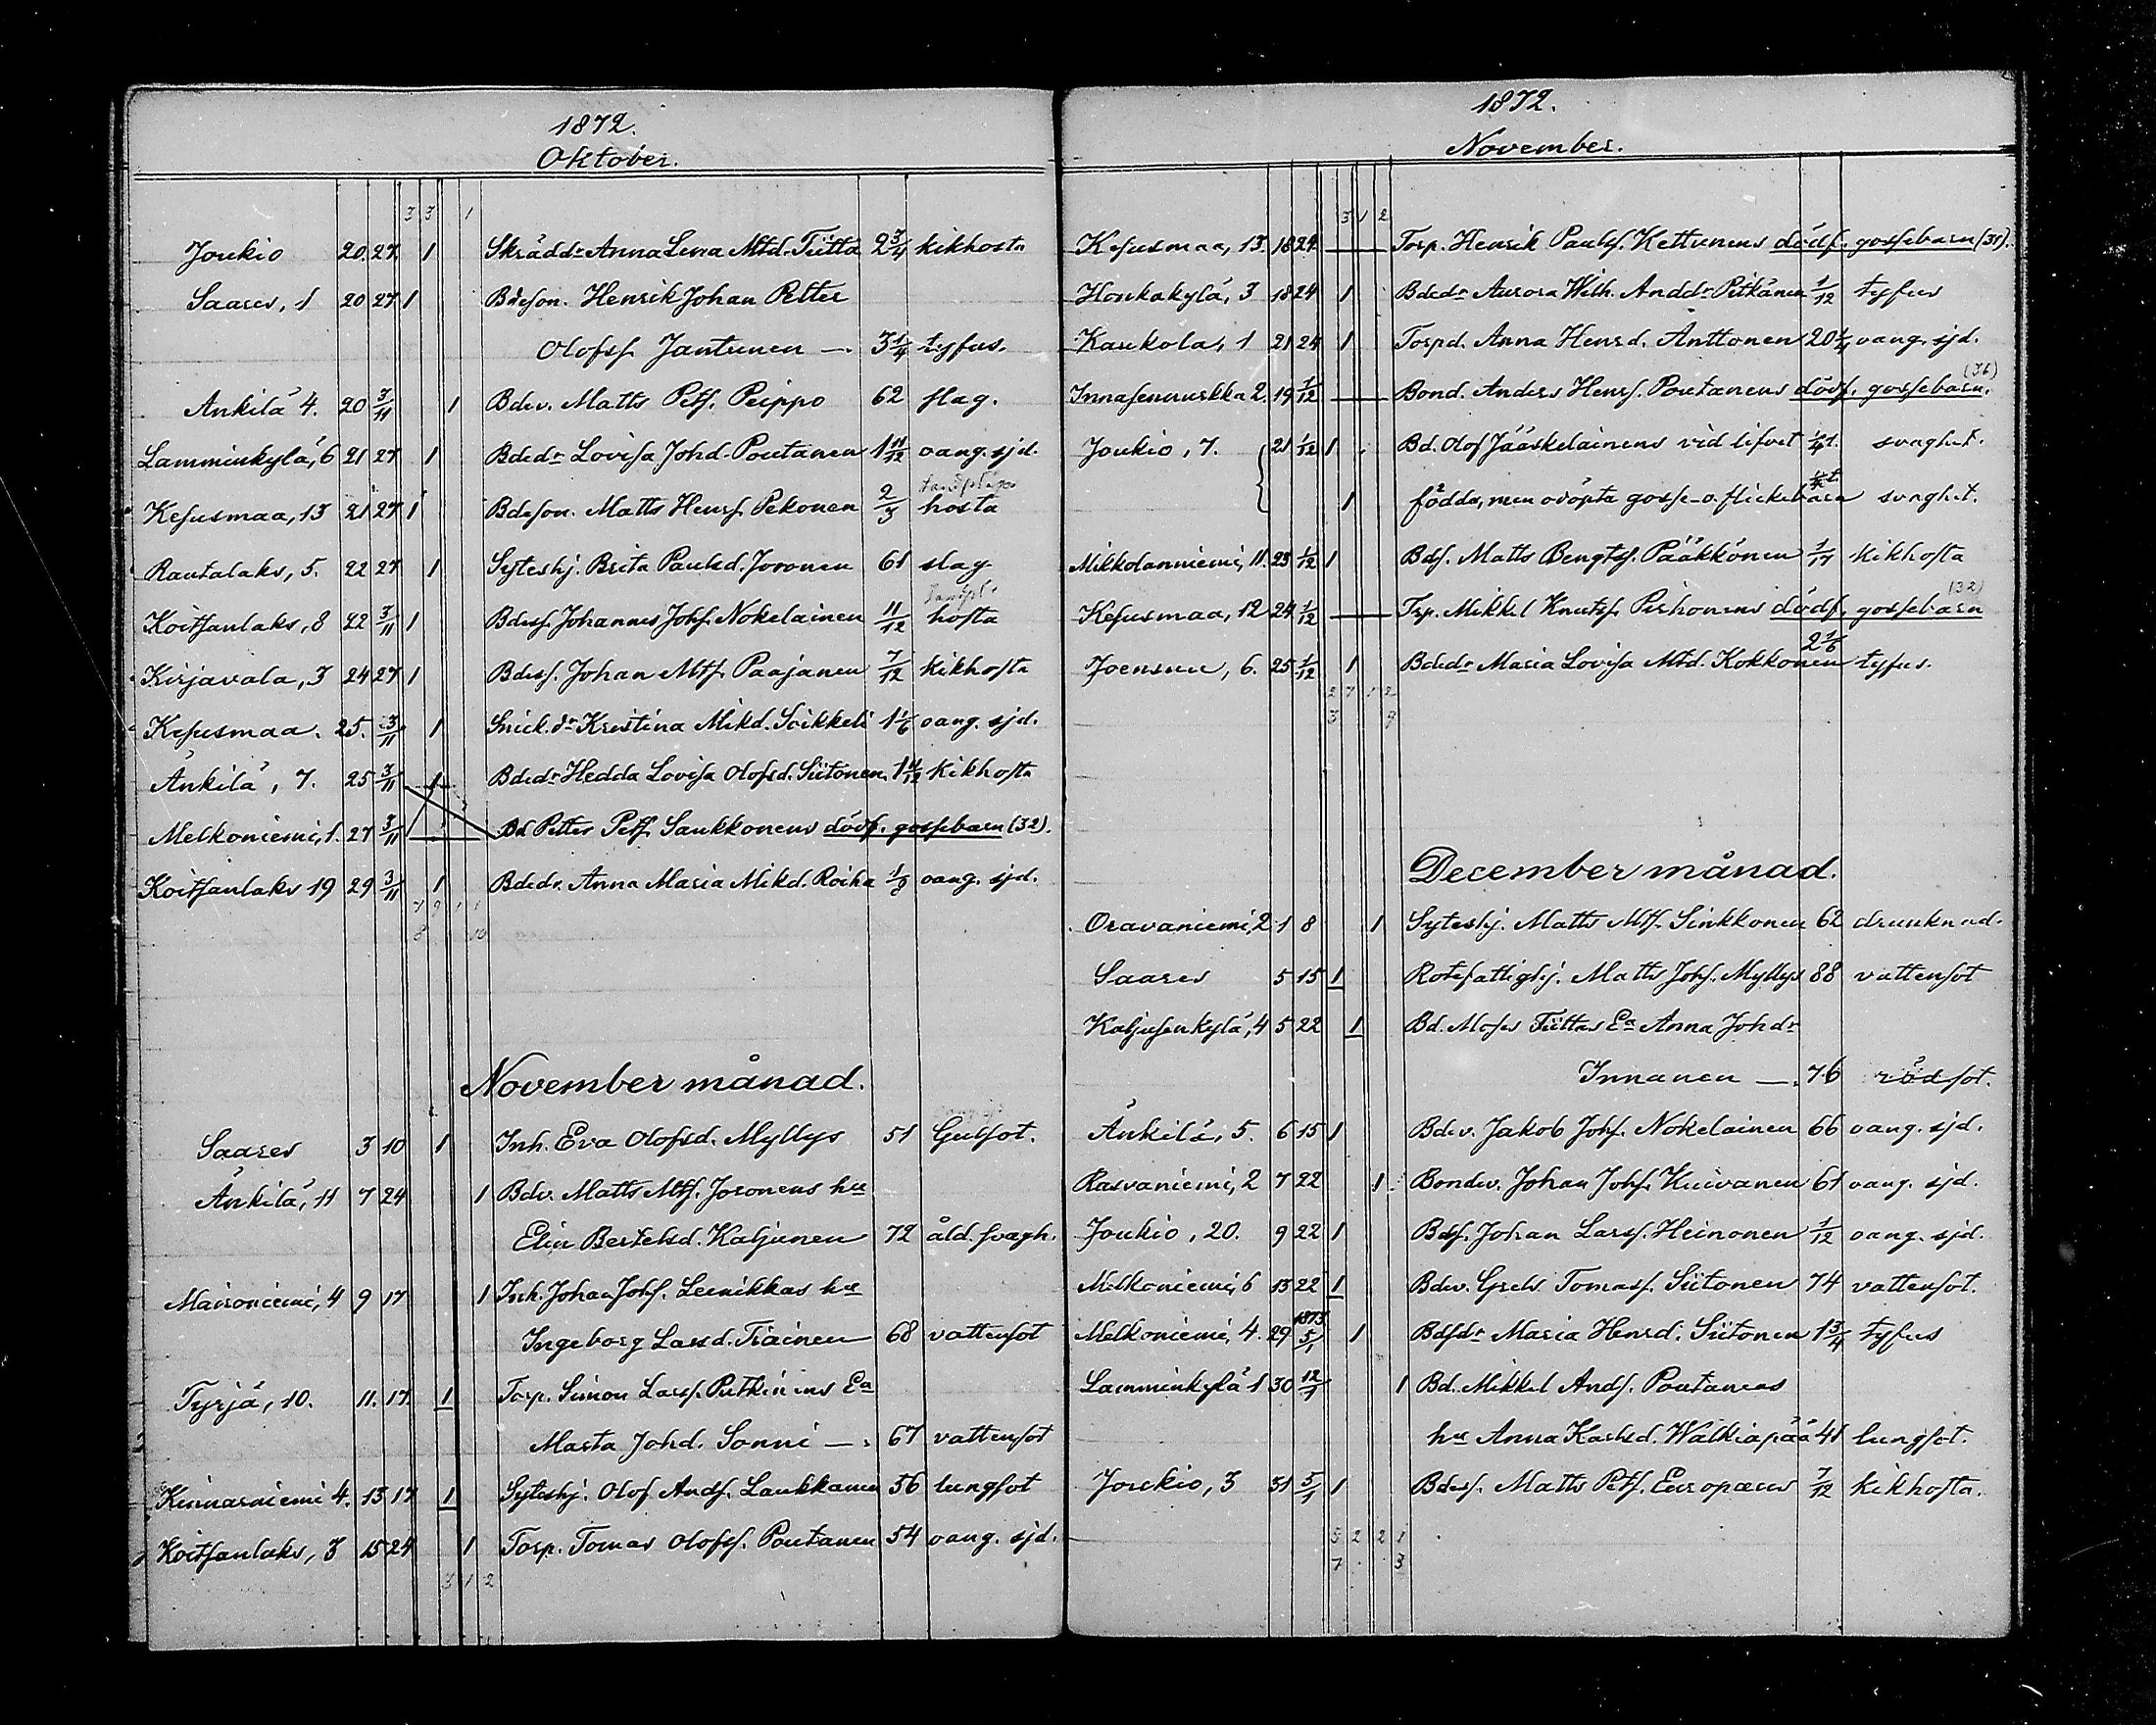 1872.
Oktober.
3 3 1
Joukio 20 27 1 Skrädd:r Anna Lena Mtd. Tiitta 2 3/4 kikhosta
Saares, 1 20 27 1 Bdeson. Henrik Johan Petter
Olofss. Jantunen —. 3 1/4 tyfus.
Änkilä 4. 20 3/11 1 Bdev. Matts Petss. Peippo 62 slag.
Lamminkylä, 6 21 27 1 Bdedr Lovisa Johd. Poutanen 1 11/12 oang. sjd.
Kesusmaa, 13 21 27 1 Bdeson. Matts Henrss. Pekonen 2/3 hosta
Rautalaks, 5. 22 27 1 Syteshj. Brita Paulsd. Joronen 61 slag
Koitsanlaks, 8 22 3/11 1 Bdess. Johannes Johss. Nokelainen 11/12 hosta
Kirjavala, 3 24 27 1 Bdess. Johan Mtss. Paajanen 7/12 kikhosta
Kesusmaa. 25. 3/11 1 Snick.dr Kristina Mikd. Soikkeli 1 1/6 oang. sjd.
Änkilä, 7. 25 3/11 1 Bdedr Hedda Lovisa Olofsd. Siitonen 1 11/12 kikhosta
Melkoniemi, 1. 27 3/11 Bd Petter Petss. Saukkonens dödf. gossebarn (32).
Koitsanlaks 19 29 3/11 1 Bdedr. Anna Maria Mikd. Roiha oang. sjd.
7 9 1 1
8 10
November månad.
Saares 3 10 1 Inh. Eva Olofsd. Myllys 51 Gulsot.
Änkilä, 11 7 24 1 Bdv. Matts Mtss. Joronens hu
Elin Bertelsd. Kaljunen 72 åld. svagh.
Maironiemi, 4 9 17 1 Inh. Johan Johss. Leinikkas hu
Ingeborg Larsd. Tiainen 68 vattensot
Tyrjä, 10. 11. 17. 1 Torp. Simon Larss. Putkinens Ea
Marta Johd. Sonni —. 67 vattensot
Kinnarniemi 4. 13 17 1 Syteshj. Olof Andss. Laukkanen 56 lungsot
Koitsanlaks, 3 15 24 1 Torp. Tomas Olofss. Poutanen 54 oang. sjd.
3 1 2
1872.
November.
3 1 2
Kesusmaa, 13. 18 24 Torp. Henrik Paulss. Kettunens dödf. gossebarn (31).
Houkakylä, 3 18 24 1 Bdedr Aurora Wilh. Anddr Pitkänen 1/12 tyfus
Kaukola, 1 21 24 1 Torpd. Anna Henrd. Anttonen 20 1/4 oang. sjd.
Innasennurkka 2. 19 1/12 Bond. Anders Henrss. Poutanens dödf. gossebarn. (36)
Joukio, 7. 21 1/12 1 Bd. Olof Jääskelainens vid lifvet 1/4 t. svaghet.
1 födda, men odöpta gosse- o. flickebarn svaghet.
Mikkolanniemi, 11. 23 1/12 1 Bdss. Matts Bengtss. Pääkkönen kikhosta
Kesusmaa, 12 24 1/12 Trp. Mikkel Knutss. Pirhonens dödf. gossebarn (32)
Joensuu, 6. 25 1/12 1 Bdedr Maria Lovisa Mtd. Kokkonen 2 1/6 tyfus.
2 7 1 2
3 9
December månad.
Oravaniemi, 2 1 8 1 Syteshj. Matts Mtss. Sinkkonen 62 drunknad.
Saares 5 15 1 Rotefattighj. Matts Johss. Myllys 88 vattensot
Kaljusenkylä, 4 5 22 1 Bd. Moses Tiittas Ea Anna Johdr
Innanen —. 76 rödsot.
Änkilä, 5. 6 15 1 Bdev. Jakob Johss. Nokelainen 66 oang. sjd.
Rasvaniemi, 2 7 22 1 Bondev. Johan Johss. Kuivanen 61 oang. sjd.
Joukio, 20. 9 22 1 Bdss. Johan Larss. Heinonen 1/12 oang. sjd.
Melkoniemi, 6 13 22 1 Bdev. Grels Tomass. Siitonen 74 vattensot.
Melkoniemi, 4. 29 1873 5/1 1 Bdsdr Maria Henrd. Siitonen 1 3/4 tyfus
Lamminkylä 1 30 12/1 1 Bd. Mikkel Andss. Poutanens
hu Anna Karlsd. Wälkiapää 41 lungsot.
Joukio, 3 31 5/1 1 Bdess. Matts Petss. Europaeus 7/12 kikhosta.
5 2 2 1
7 3